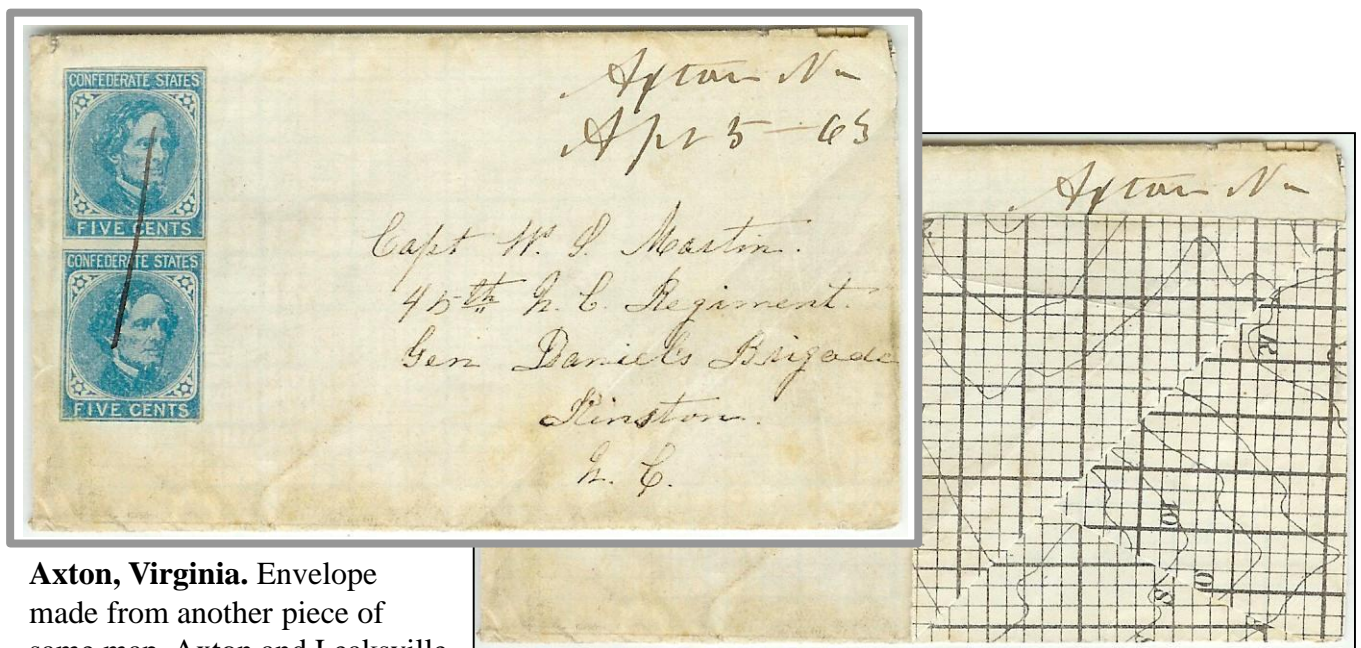 CONFEDERATE STATES
FIVE CENTS
CONFEDERATE STATES
FIVE CENTS
Axton Va
Apr 5 - 63
Capt W. S. Martin.
45th N. C. Regiment.
Gen Daniel's Brigade
Kinston.
N. C.
Axton Va
10
Axton, Virginia. Envelope
made from another piece of
same map. Axton and Leaksville